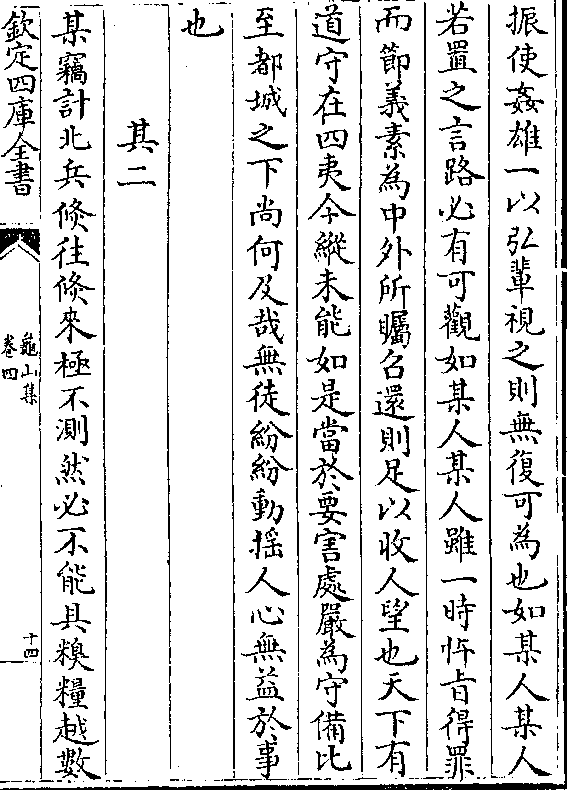 振使姦雄一以弘輩視之則無復可為也如某人某人
若置之言路必有可觀如某人某人雖一時忤㫖得罪
而節義素為中外所矚召還則足以收人望也天下有
道守在四夷今縱未能如是當於要害處嚴為守備比
至都城之下尚何及哉無徒紛紛動揺人心無益於事
也
其二
某竊計北兵倐往倐來極不測然必不能具糗糧越數
欽定四庫全書
龜山集
卷四
十四